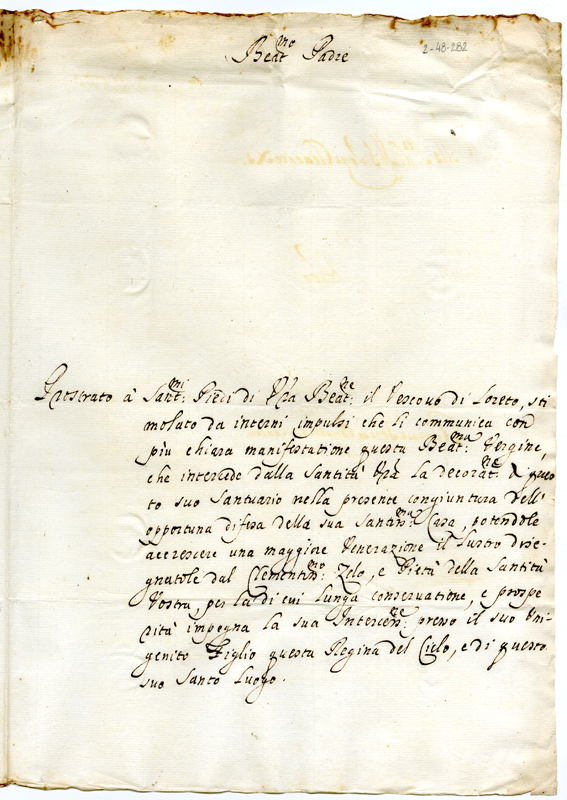 2-48-282
Beat:mo Padre
Prostrato à Sant:mi Piedi di Vra Beat:ne il Vescovo di Loreto, sti
molato da interni impulsi che li communica con
più chiara manifestatione questa Beat:ma Vergine,
che intercede dalla Santità Vra la decorat:ne di ques
to suo Santuario nella presente congiuntura dell'
opportuna difesa della sua Santiss:ma Casa, potendole
accrescere una maggiore Venerazione il lustro dise-
gnatole dal Clementiss:mo Zelo, e Pietà della Santità
Vostra, per la di cui lunga conservatione, e prospe
rità impegna la sua Intercess:ne presso il suo Uni
genito Figlio questa Regina del Cielo, e di questo
suo Santo Luogo.